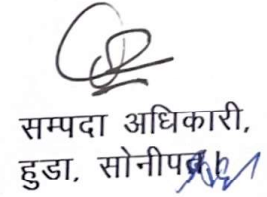 सम्पदा अधिकारी,
हुडा, सोनीपत।